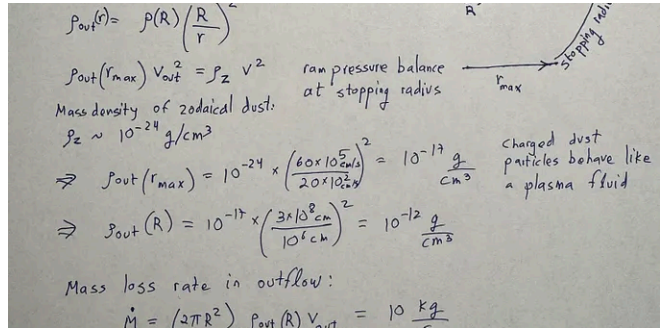 ρout(r) = ρ(R) (R/r)^2
R
stopping radiu
ρout(rmax) Vout^2 = ρz V^2 ram pressure balance at stopping radius
rmax
Mass density of zodaical dust:
ρz ~ 10^-24 g/cm^3
⇒ ρout(rmax) = 10^-24 × (60×10^5 cm/s / 20×10^2 cm/s)^2 = 10^-17 g/cm^3
charged dust
particles behave like
a plasma fluid
⇒ ρout(R) = 10^-17 × (3×10^8 cm / 10^6 cm)^2 = 10^-12 g/cm^3
Mass loss rate in outflow:
Ṁ = (2πR^2) ρout(R) Vout = 10 kg